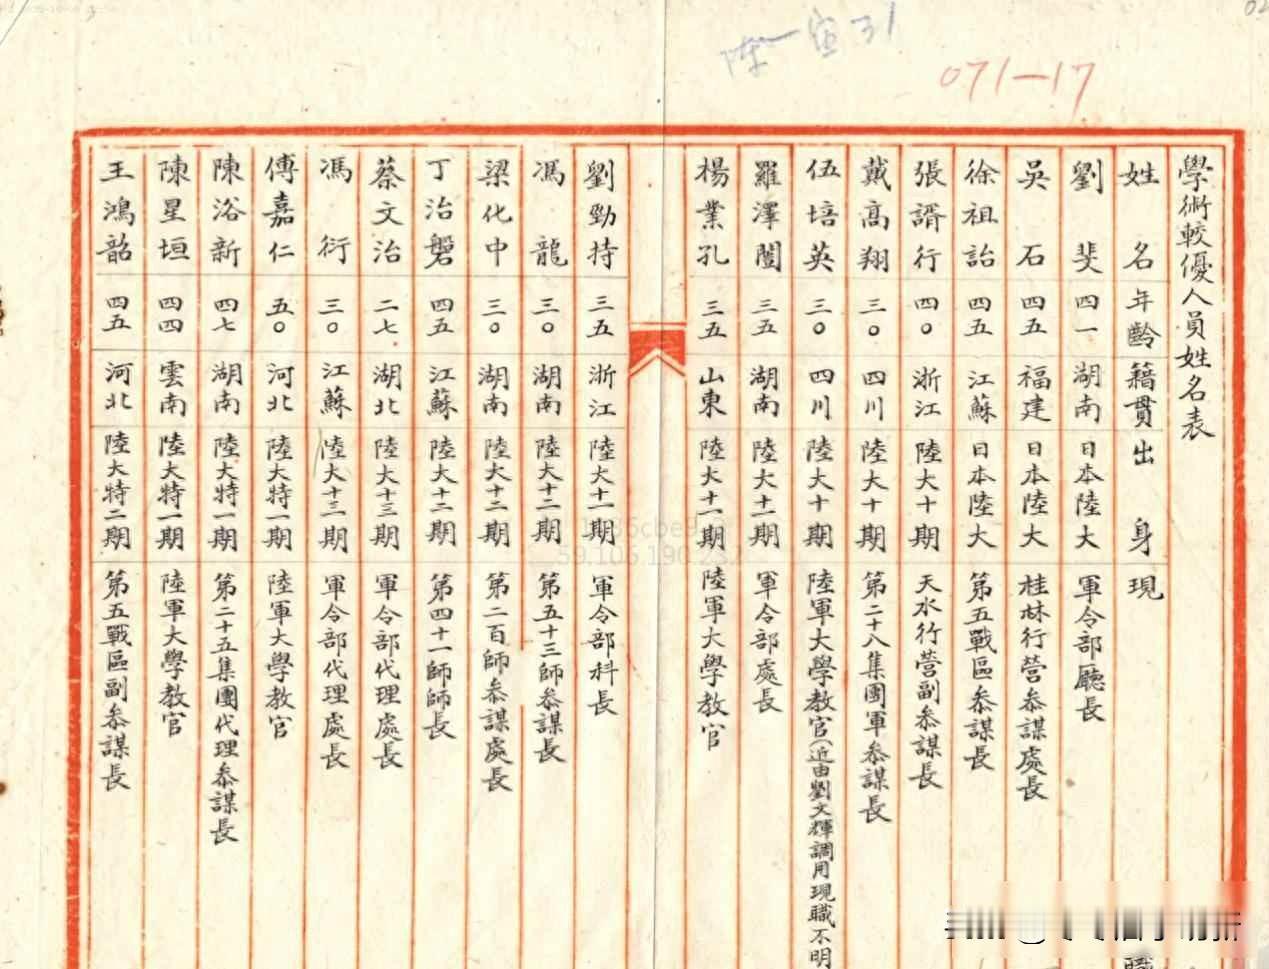 071—17
學術較優人員姓名表
姓名 年齡 籍貫 出身 現職
劉斐 四一 湖南 日本陸大 軍令部廳長
吳石 四五 福建 日本陸大 桂林行營參謀處長
徐祖詒 四五 江蘇 日本陸大 第五戰區參謀長
張諝行 四〇 浙江 陸大十期 天水行營副參謀長
戴高翔 三〇 四川 陸大十期 第二十八集團軍參謀長
伍培英 三〇 四川 陸大十期 陸軍大學教官(近由劉文輝調用現職不明
羅澤闓 三五 湖南 陸大十一期 軍令部處長
楊業孔 三五 山東 陸大十一期 陸軍大學教官
劉勁持 三五 浙江 陸大十一期 軍令部科長
馮龍 三〇 湖南 陸大十二期 第五十三師參謀長
梁化中 三〇 湖南 陸大十二期 第二百師參謀處長
丁治磐 四五 江蘇 陸大十二期 第四十一師師長
蔡文治 二七 湖北 陸大十三期 軍令部代理處長
馮衍 三〇 江蘇 陸大十三期 軍令部代理處長
傅嘉仁 五〇 河北 陸大特一期 陸軍大學教官
陳浴新 四七 湖南 陸大特一期 第二十五集團代理參謀長
陳星垣 四四 雲南 陸大特一期 陸軍大學教官
王鴻韶 四五 河北 陸大特二期 第五戰區副參謀長